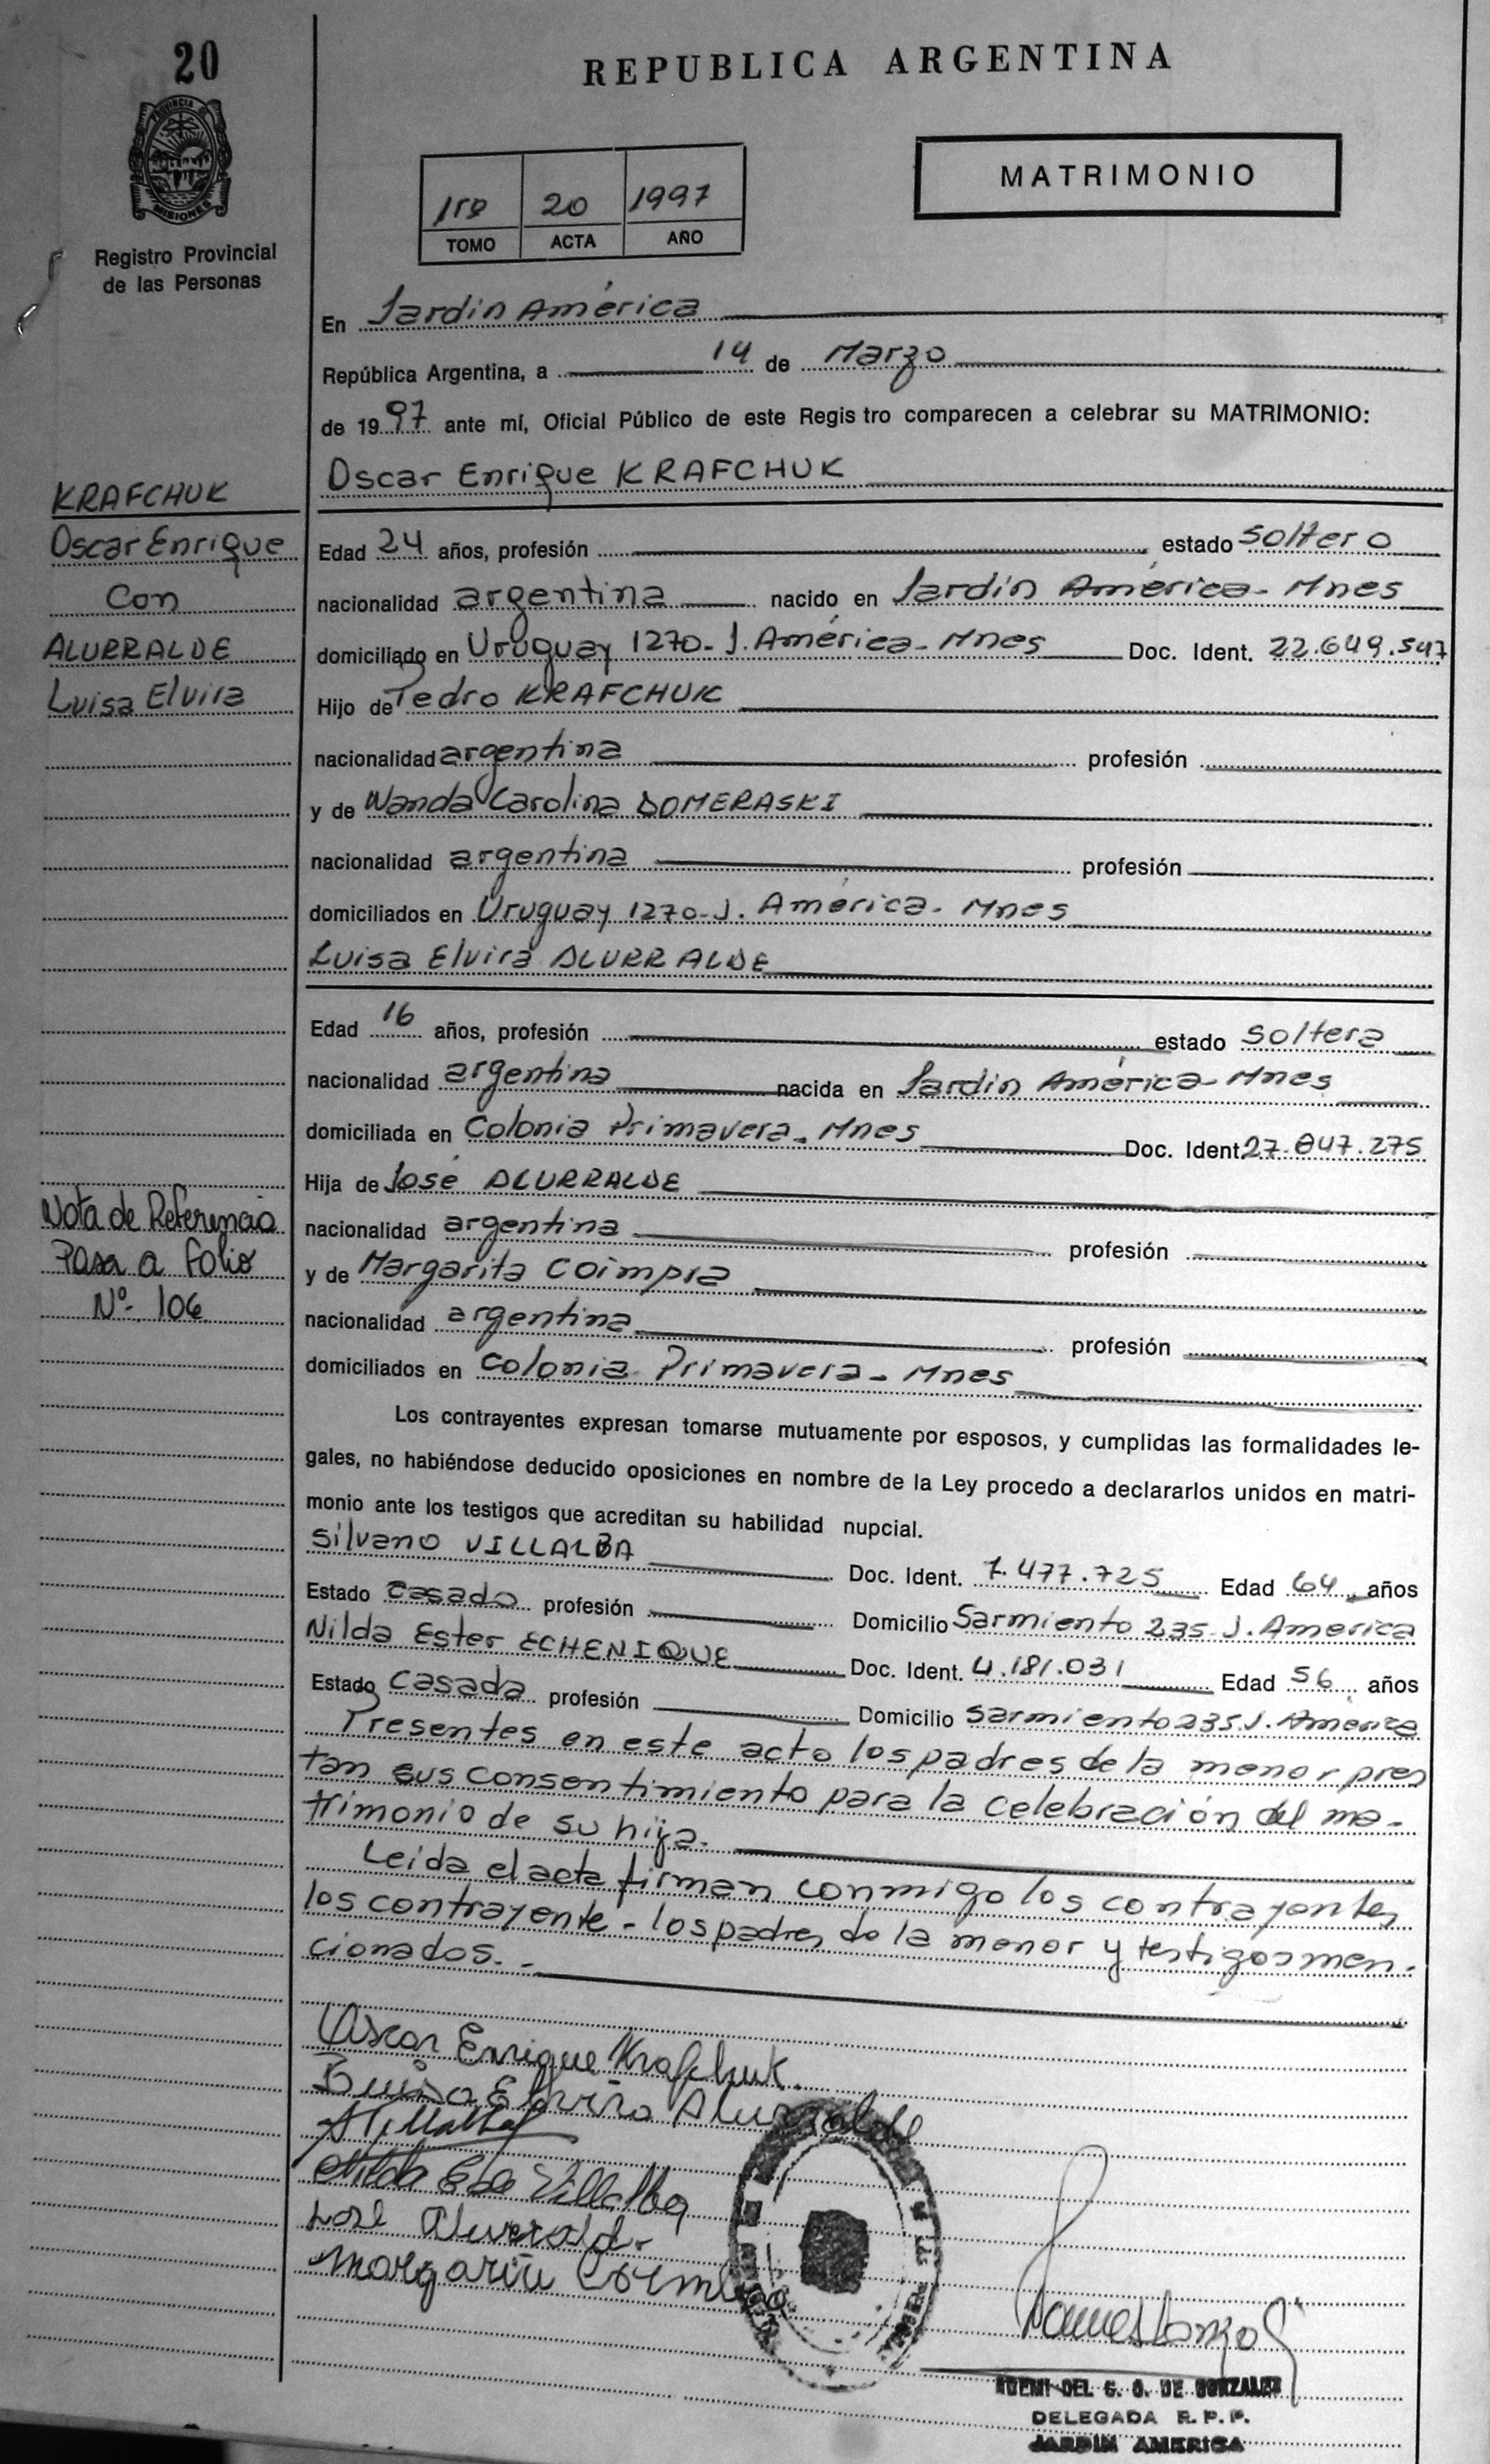 20
REPUBLICA ARGENTINA
PROVINCIA DE
MISIONES
Registro Provincial
de las Personas
1ro 20 1997
TOMO ACTA AÑO
MATRIMONIO
En Jardín América
República Argentina, a 14 de Marzo
de 1997 ante mí, Oficial Público de este Regis tro comparecen a celebrar su MATRIMONIO:
Oscar Enrique KRAFCHUK
KRAFCHUK
Oscar Enrique
Con
ALURRALDE
Luisa Elvira
Edad 24 años, profesión estado soltero
nacionalidad argentina nacido en Jardín América - Mnes
domiciliado en Uruguay 1270- J. América - Mnes Doc. Ident. 22.649.547
Hijo de Pedro KRAFCHUK
nacionalidad argentina profesión
y de Wanda Carolina DOMERASKI
nacionalidad argentina profesión
domiciliados en Uruguay 1270-J. América - Mnes
Luisa Elvira ALURRALDE
Edad 16 años, profesión estado soltera
nacionalidad argentina nacida en Jardín América - Mnes
domiciliada en Colonia Primavera - Mnes Doc. Ident. 27.847.275
Hija de José ALURRALDE
nacionalidad argentina profesión
y de Margarita COIMPRA
nacionalidad argentina profesión
domiciliados en Colonia Primavera - Mnes
Nota de Referencia
Pasa a folio
Nº 106
Los contrayentes expresan tomarse mutuamente por esposos, y cumplidas las formalidades le-
gales, no habiéndose deducido oposiciones en nombre de la Ley procedo a declararlos unidos en matri-
monio ante los testigos que acreditan su habilidad nupcial.
Silvano VILLALBA Doc. Ident. 7.477.725 Edad 64 años
Estado casado profesión Domicilio Sarmiento 235- J. America
Nilda Ester ECHENIQUE Doc. Ident. 4.181.031 Edad 56 años
Estado casada profesión Domicilio Sarmiento 235 J. America
Presentes en este acto los padres de la menor pres
tan sus consentimiento para la celebración del ma-
trimonio de su hija.
Leida el acta firman conmigo los contrayentes
los contrayente - los padres de la menor y testigos men-
cionados. -
Oscar Enrique Krafchuk
Luisa Elvira Alurralde
Nilda Villalba
José Alurralde
Margarita
NOEMI DEL G. O. DE GONZALEZ
DELEGADA R. P. P.
JARDIN AMERICA